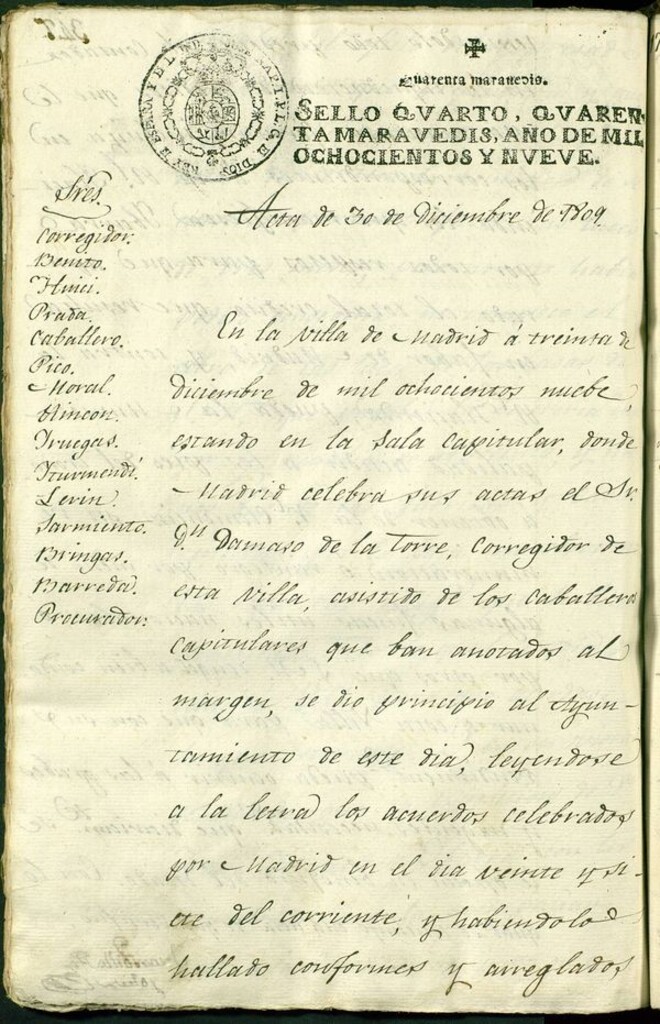 Quarenta maravedis.
SELLO QVARTO, QVAREN-
TA MARAVEDIS, AÑO DE MIL
OCHOCIENTOS Y NVEVE.
Acta de 30 de Diciembre de 1809.
Sres.
Corregidor.
Benito.
Prada.
Caballero.
Pico.
Moral.
Rincon.
Iruegas.
Iturmendi.
Lerin.
Sarmiento.
Bringas.
Barreda.
Procurador.
En la villa de Madrid á treinta de
diciembre de mil ochocientos nuebe,
estando en la sala capitular, donde
Madrid celebra sus actas el Sr.
Dn. Damaso de la Torre, Corregidor de
esta villa, asistido de los caballeros
capitulares que ban anotados al
margen, se dio principio al Ayun-
tamiento de este dia, leyendose
a la letra los acuerdos celebrados
por Madrid en el dia veinte y si-
ete del corriente, y habiendolo
hallado conformes y arreglados